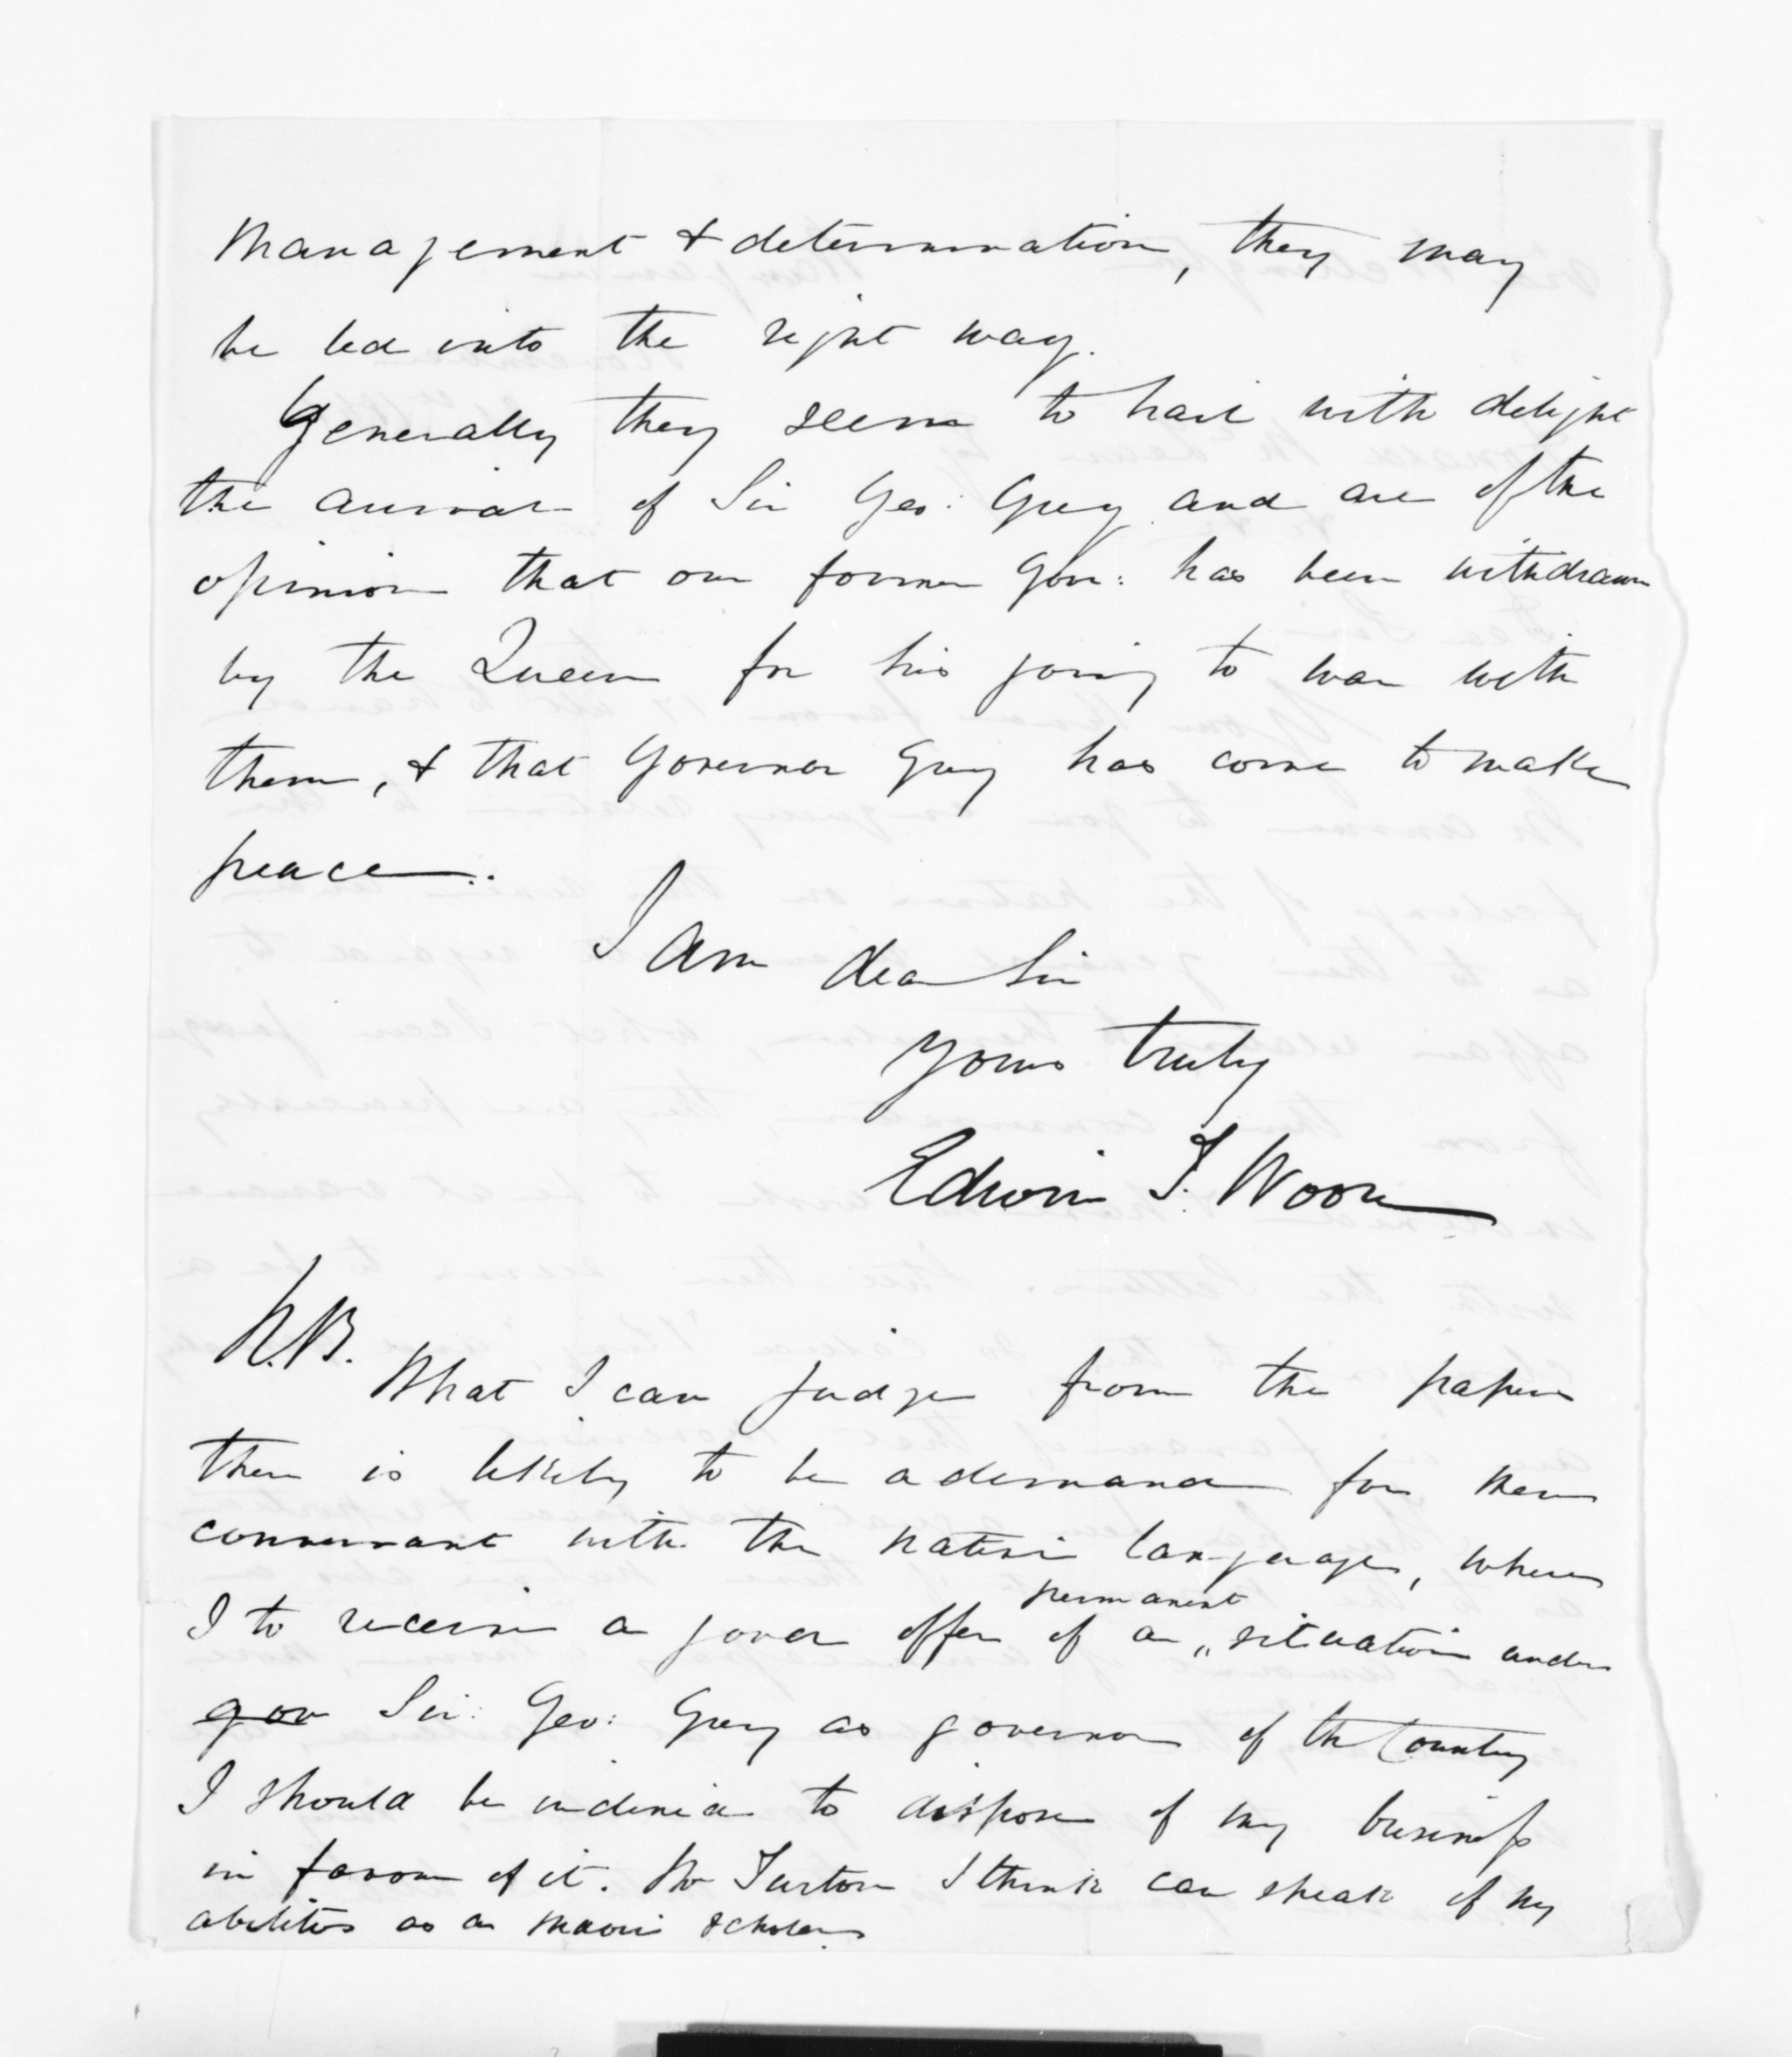 Management & determination, they may
be led into the right way.
Generally they seem to hail with delight
the arrival of Sir Geo: Grey and are of the
opinion that our former Gov: has been withdrawn
by the Queen for his going to war with
them, & that Governor Grey has come to make
peace.
I am dear Sir
Yours truly
Edwin T. Woon
N.B. What I can judge from the papers
there is likely to be a demand for men
conversant with the native language, where
I to receive a good offer of a permanent situation under
gov Sir: Geo: Grey as governor of the Country
I should be inclined to dispose of my business
in favour of it. Mr Turton I think can speak of my
abilities as a Maori scholar.